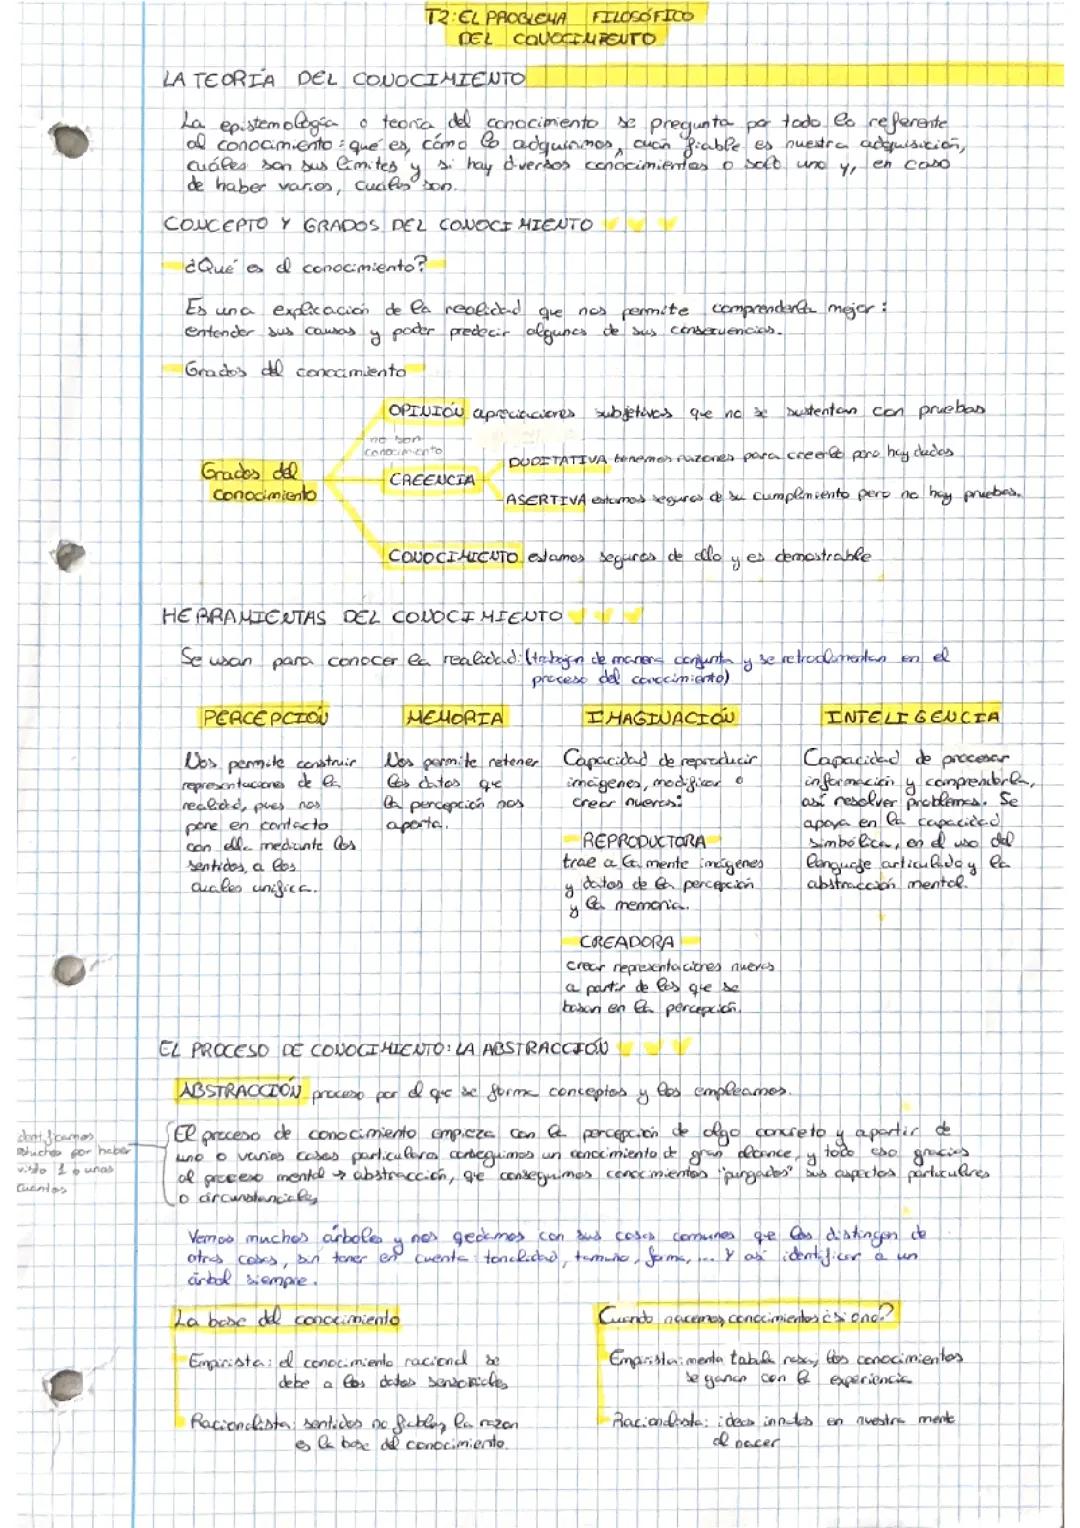 T2: EL PROBLEMA FILOSÓFICO
DEL CONOCIMIENTO
LA TEORÍA DEL CONOCIMIENTO
La epistemología o teoría del conocimiento se pregunta por todo lo referente
al conocimiento: qué es, cómo lo adquirimos, cuán fiable es nuestra adquisición,
cuáles son sus límites y si hay diversos conocimientos o solo uno y, en caso
de haber varios, cuáles son.
CONCEPTO Y GRADOS DEL CONOCIMIENTO
¿Qué es el conocimiento?
Es una explicación de la realidad que nos permite comprenderla mejor:
entender sus causas y poder predecir algunas de sus consecuencias.
Grados del conocimiento
OPINIÓN apreciaciones subjetivas que no se sustentan con pruebas
no son
conocimiento
DUDITATIVA tenemos razones para creerlo pero hay dudas
Grados del
conocimiento
CREENCIA
ASERTIVA estamos seguros de su cumplimiento pero no hay pruebas.
CONOCIMIENTO estamos seguros de ello y es demostrable
HERRAMIENTAS DEL CONOCIMIENTO
Se usan para conocer la realidad: (trabajan de manera conjunta y se retroalimentan en el
proceso del conocimiento)
PERCEPCIÓN
Nos permite construir
representaciones de la
realidad, pues nos
pone en contacto
con ella mediante los
sentidos, a los
cuales unifica.
MEMORIA
Nos permite retener
los datos que
la percepción nos
aporta.
IMAGINACIÓN
Capacidad de reproducir
imágenes, modificar o
crear nuevas:
REPRODUCTORA
trae a la mente imágenes
y datos de la percepción
y la memoria.
CREADORA
crear representaciones nuevas
a partir de las que se
basan en la percepción.
INTELIGENCIA
Capacidad de procesar
información y comprenderla,
así resolver problemas. Se
apoya en la capacidad
simbólica, en el uso del
lenguaje articulado y la
abstracción mental.
EL PROCESO DE CONOCIMIENTO: LA ABSTRACCIÓN
ABSTRACCIÓN proceso por el que se forma conceptos y los empleamos.
identificamos
muchos por haber
visto 1 o unos
cuantos
El proceso de conocimiento empieza con la percepción de algo concreto y a partir de
uno o varios casos particulares conseguimos un conocimiento de gran alcance, y todo eso gracias
al proceso mental → abstracción, que conseguimos conocimientos "purgados" sus aspectos particulares
o circunstanciales
Vemos muchos árboles y nos quedamos con sus cosas comunes que los distingen de
otras cosas, sin tener en cuenta: tonalidad, tamaño, forma, ... Y así identificar a un
árbol siempre.
La base del conocimiento
Empirista: el conocimiento racional se
debe a los datos sensoriales
Racionalista: sentidos no fiables, la razon
es la base del conocimiento.
Cuando nacemos, conocimientos ¿si o no?
Empirista: mente tabula rasa, los conocimientos
se ganan con la experiencia
Racionalista: ideas innatas en nuestra mente
al nacer